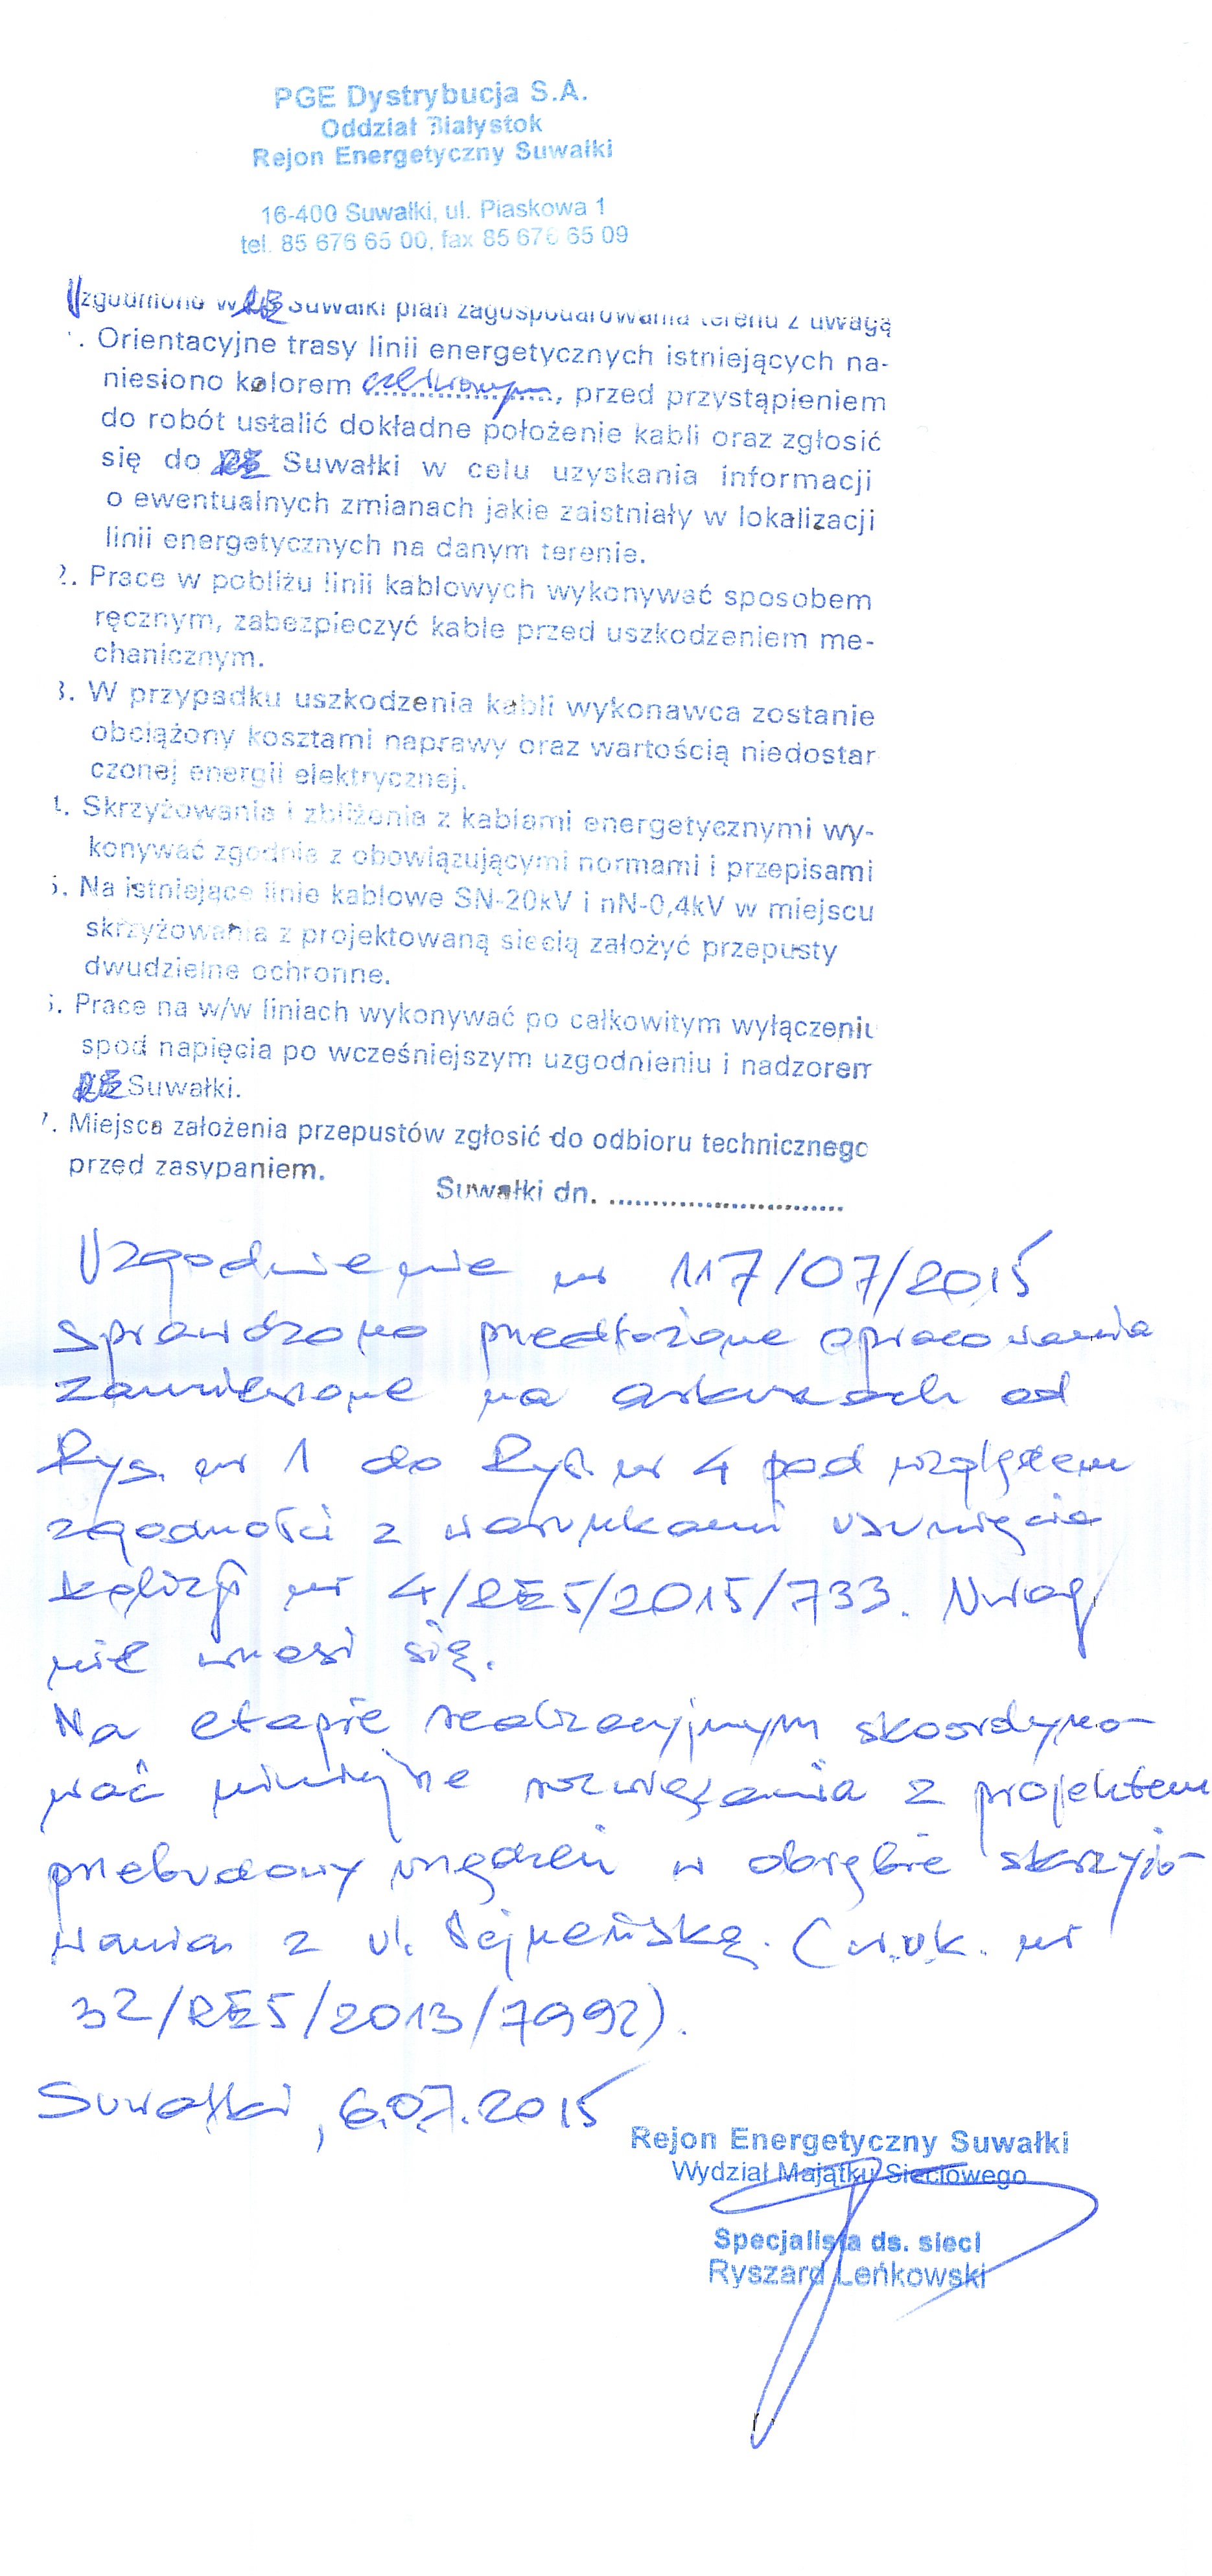 PGE Dystrybucja S.A.
Oddział Białystok
Rejon Energetyczny Suwałki
16-400 Suwałki, ul. Piaskowa 1
tel. 85 676 65 00, fax 85 676 65 09
Uzgodniono w RE Suwałki plan zagospodarowania terenu z uwagą
. Orientacyjne trasy linii energetycznych istniejących na-
niesiono kolorem, przed przystąpieniem
do robót ustalić dokładne położenie kabli oraz zgłosić
się do RE Suwałki w celu uzyskania informacji
o ewentualnych zmianach jakie zaistniały w lokalizacji
linii energetycznych na danym terenie.
2. Prace w pobliżu linii kablowych wykonywać sposobem
ręcznym, zabezpieczyć kable przed uszkodzeniem me-
chanicznym.
3. W przypadku uszkodzenia kabli wykonawca zostanie
obciążony kosztami naprawy oraz wartością niedostar
czonej energii elektrycznej.
4. Skrzyżowania i zbliżenia z kablami energetycznymi wy-
konywać zgodnie z obowiązującymi normami i przepisami
5. Na istniejące linie kablowe SN-20kV i nN-0,4kV w miejscu
skrzyżowania z projektowaną siecią założyć przepusty
dwudzielne ochronne.
6. Prace na w/w liniach wykonywać po całkowitym wyłączeniu
spod napięcia po wcześniejszym uzgodnieniu i nadzorem
RE Suwałki.
7. Miejsca założenia przepustów zgłosić do odbioru technicznego
przed zasypaniem.
Suwałki dn. ..............................
Uzgodnienie nr 117/07/2015
Sprawdzono przedłożone opracowania
zamieszone na arkuszach od
Rys. nr 1 do Rys. nr 4 pod względem
zgodności z warunkami usunięcia
kolizji nr 4/RE5/2015/733. Uwag
nie wnosi się.
Na etapie realizacyjnym skoordyno-
wać niniejsze rozwiązania z projektem
przebudowy urządzeń w obrębie skrzyżo-
wania z ul. Sejneńską. (w.u.k. nr
32/RE5/2013/7992).
Suwałki, 6.07.2015
Rejon Energetyczny Suwałki
Wydział Majątku Sieciowego
Specjalista ds. sieci
Ryszard Leńkowski